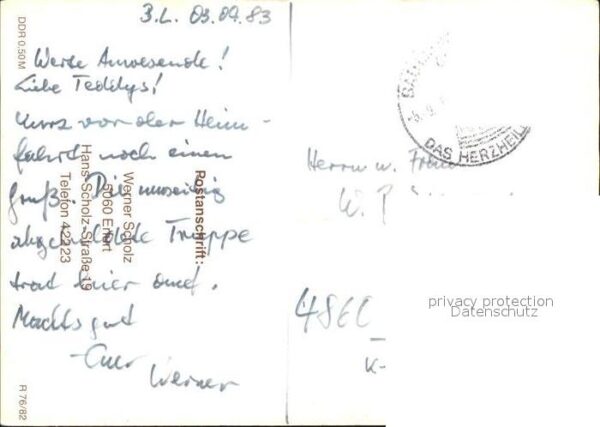 B.L. 03.09.83
Werte Anwesende!
Liebe Teddys!
Kurz vor der Heim-
fahrt noch einen
Gruß. Die umseitig
abgebildete Truppe
trat hier auf.
Machts gut
-Euer
Werner
DDR 0,50 M
R 76/82
Postanschrift:
Werner Scholz
5060 Erfurt
Hans-Scholz-Straße 19
Telefon 42223
DAS HERZHEIL
Herrn u. Frau
W.
privacy protection
Datenschutz
K-